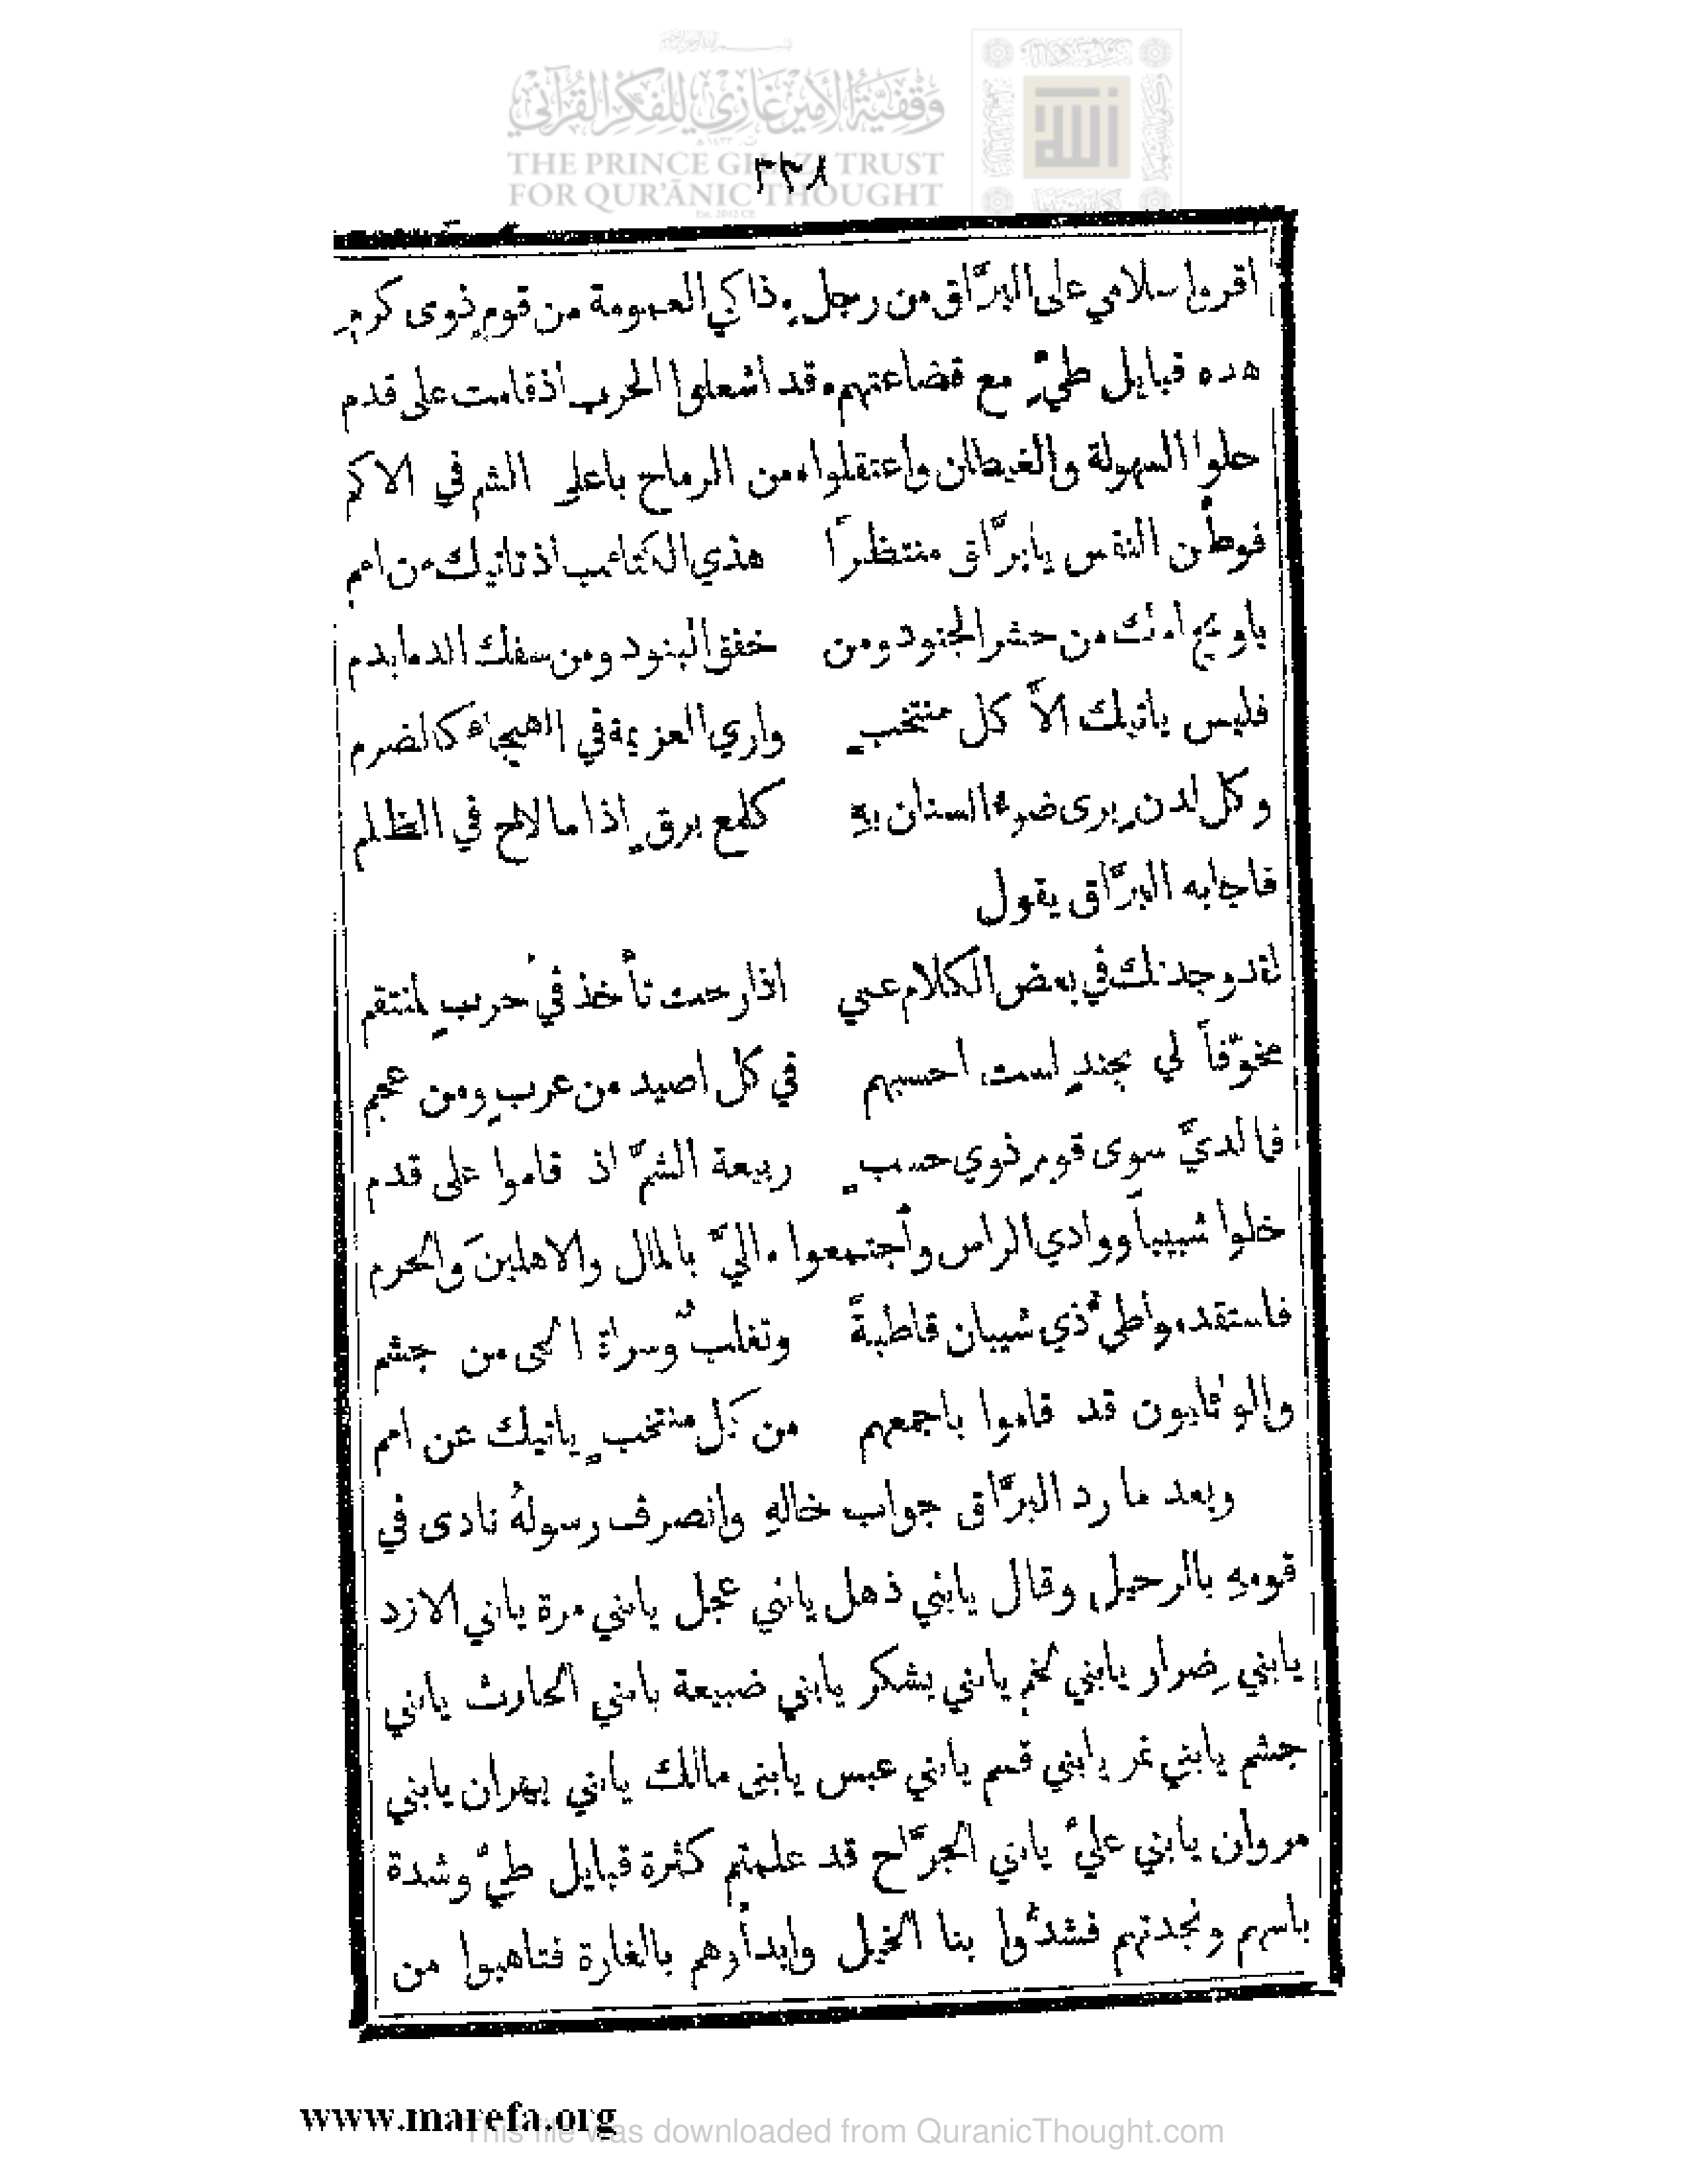 وقفية الأمير غازي للفكر القرآني
THE PRINCE GHAZI TRUST
FOR QUR'ĀNIC THOUGHT
Est. 2012 CE
٣٣٨
اقروا سلامي على البرَّاق من رجل * ذاكي العمومة من قومٍ ذوى كرم
هده قبايل طيٍّ مع قضاعتهم * قد اشعلوا الحرب اذ قامت على قدم
حلوا السهولة والغيطان واعتقلوا * من الرماح باعلى الشم في الاكم
فوطن النفس يا برَّاق منتظراً هذي الكتائب اذ تاتيك من امم
يا ويح امك من حشر الجنود ومن خفق البنود ومن سفك الدما بدم
فليس ياتيك الاَّ كل منتخبٍ واري العزيمة في الهيجاء كالضرم
وكل لدنٍ يرى ضوء السنان بهِ كلمع برقٍ إذا ما لاح في الظلم
فاجابه البرَّاق يقول
لقد وجدتك في بعض الكلام عمي اذا رحت تأخذ في حربٍ لمنتقم
مخوّفاً لي بجندٍ لست احسبهم في كل اصيد من عربٍ ومن عجم
فما لديَّ سوى قومٍ ذوي حسبٍ ربيعة الشمّ اذ قاموا على قدم
خلوا شبيباً ووادي الراس وأجتمعوا * اليَّ بالمال والاهلينَ والحرم
فاستقدموا طيَّ ذي شيبان قاطبةً وتغلبٌ وسراة الحى من جشم
والوثابون قد قاموا باجمعهم من كل منتخبٍ ياتيك عن امم
وبعد ما رد البرَّاق جواب خالهِ وانصرف رسولهُ نادى في
قومهِ بالرحيل وقال يابني ذهل يابني عجل يابني مرة يابني الازد
يابني ضرار يابني لخم يابني يشكر يابني ضبيعة يابني الحارث يابني
جشم يابني نمر يابني قسم يابني عبس يابنى مالك يابني بهران يابني
مروان يابني عليّ يابني الجرَّاح قد علمتم كثرة قبايل طيّ وشدة
باسهم ونجدتهم فشدُّوا بنا الخيل وابدأوهم بالغارة فتاهبوا من
www.marefa.org
This file was downloaded from QuranicThought.com